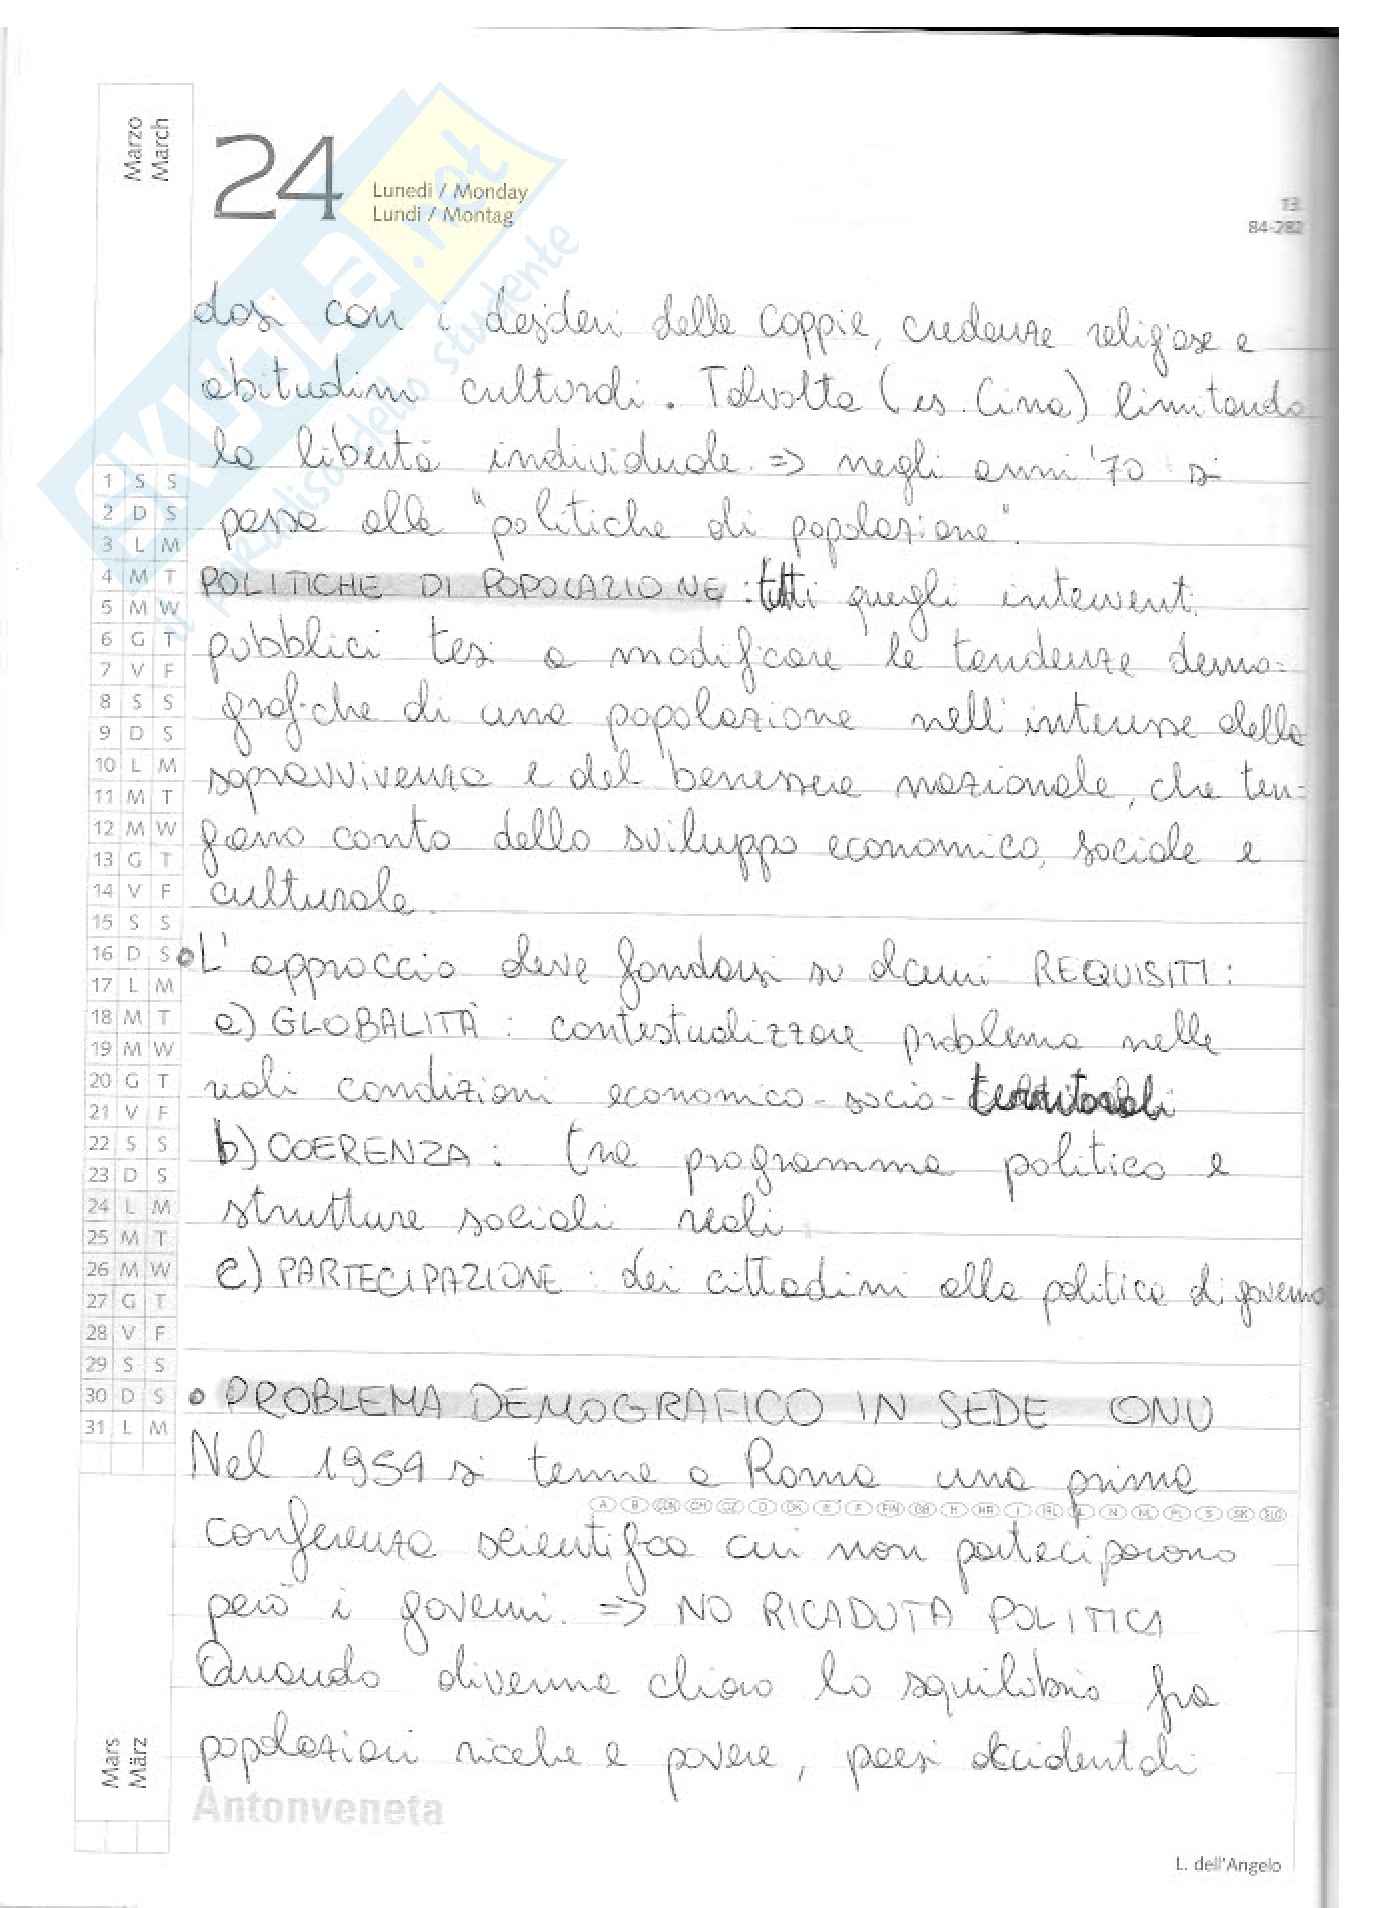 Marzo
March
24
Lunedi / Monday
Lundi / Montag
13.
84-282
SKUOLA.net
il paradiso dello studente
dosi con i desideri delle coppie, credenze religiose e
abitudini culturali. Talvolta (es. Cina) limitando
la libertà individuale. => negli anni '70 si
passa alle "politiche di popolazione".
POLITICHE DI POPOLAZIONE : tutti quegli interventi
pubblici tesi a modificare le tendenze demo=
grafiche di una popolazione nell'interesse della
sopravvivenza e del benessere nazionale, che ten=
gano conto dello sviluppo economico, sociale e
culturale.
• L'approccio deve fondarsi su alcuni REQUISITI :
a) GLOBALITÀ : contestualizzare problema nelle
reali condizioni economico-socio-territoriali
b) COERENZA : tra programma politico e
strutture sociali reali
c) PARTECIPAZIONE : dei cittadini alla politica di governo
• PROBLEMA DEMOGRAFICO IN SEDE ONU
Nel 1954 si tenne a Roma una prima
conferenza scientifica cui non parteciparono
però i governi. => NO RICADUTA POLITICA
Quando divenne chiaro lo squilibrio fra
popolazioni ricche e povere, paesi occidentali
1 S S
2 D S
3 L M
4 M T
5 M W
6 G T
7 V F
8 S S
9 D S
10 L M
11 M T
12 M W
13 G T
14 V F
15 S S
16 D S
17 L M
18 M T
19 M W
20 G T
21 V F
22 S S
23 D S
24 L M
25 M T
26 M W
27 G T
28 V F
29 S S
30 D S
31 L M
Mars
März
Antonveneta
L. dell'Angelo